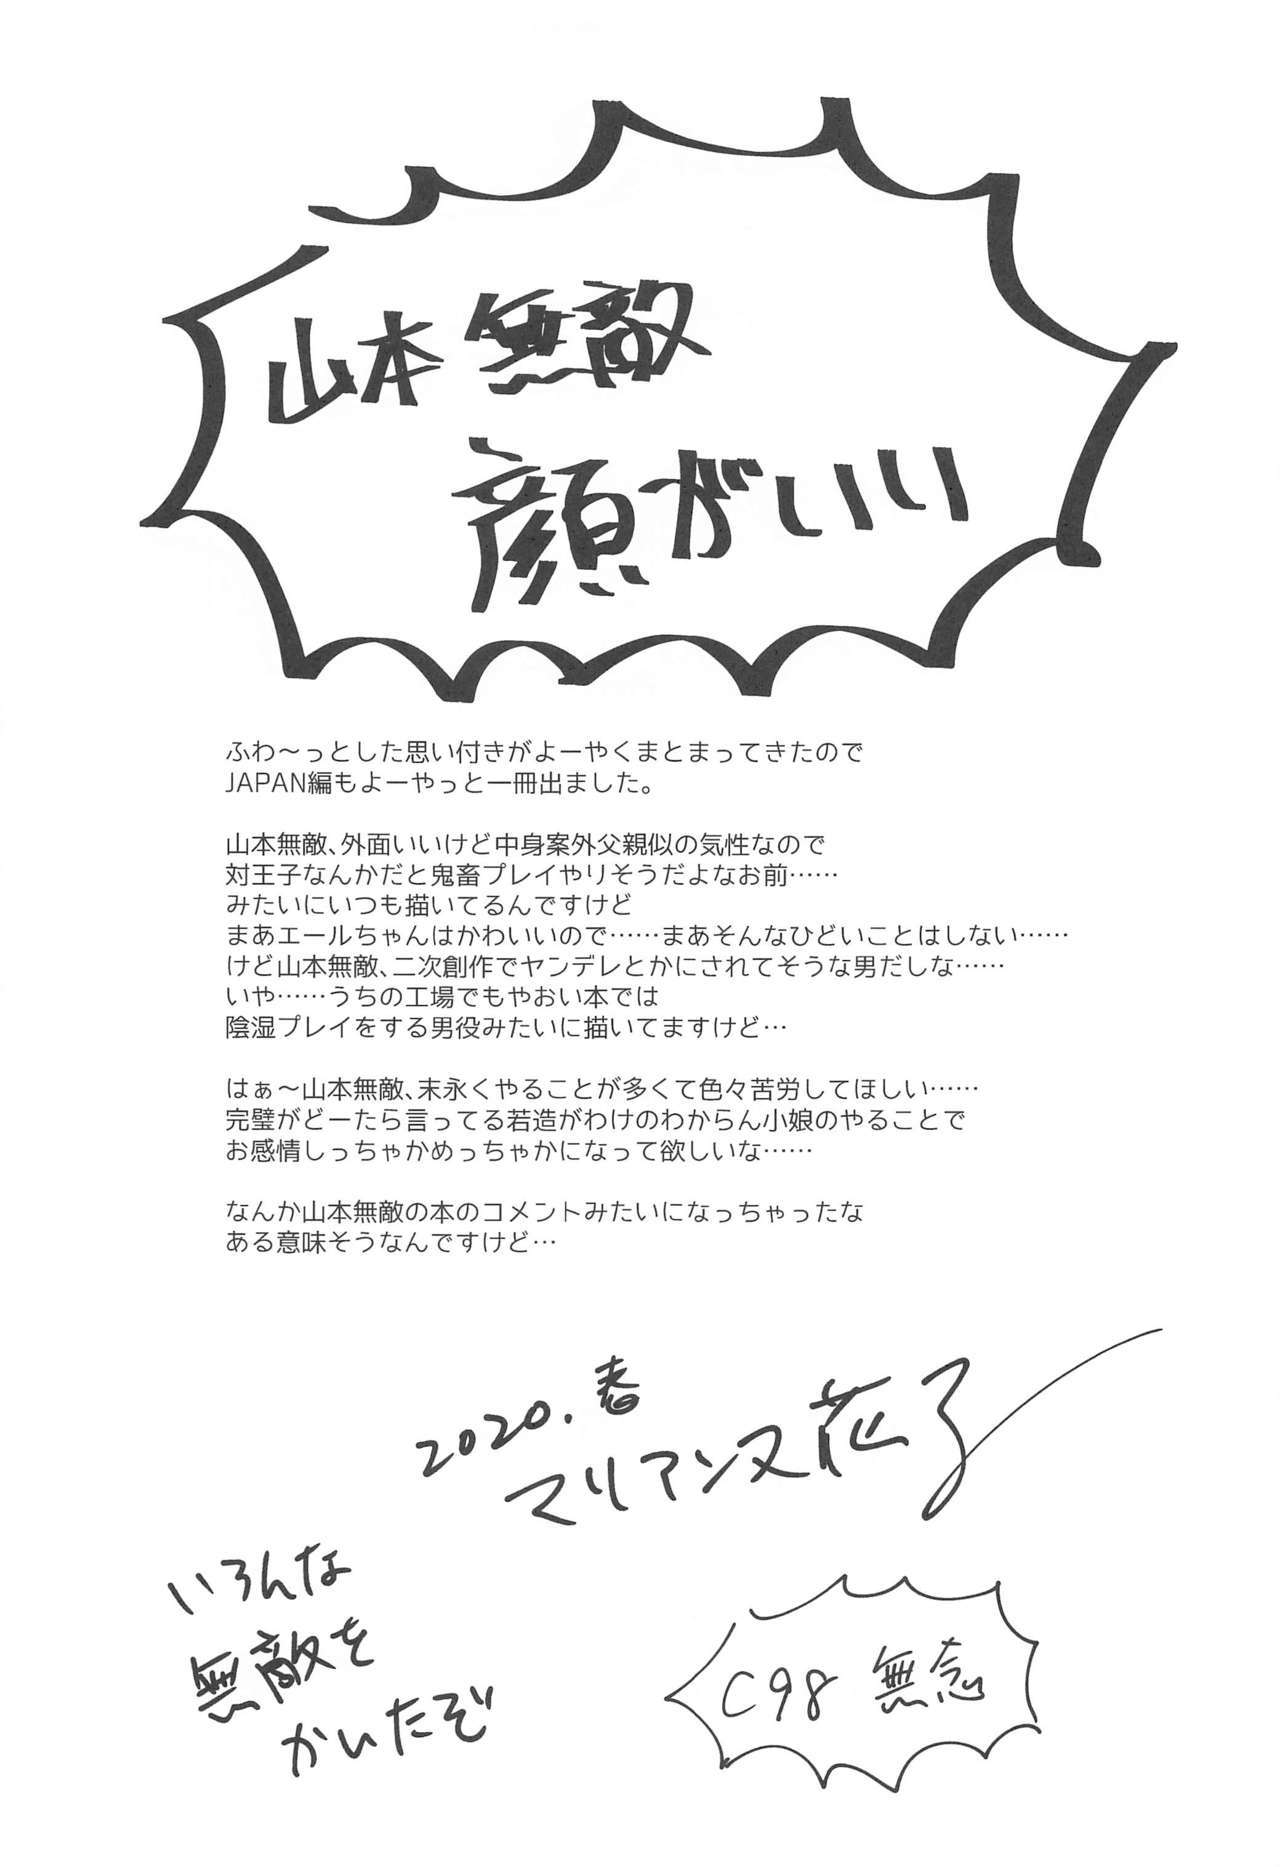 山本無敵
顔がいい
ふわ～っとした思い付きがよーやくまとまってきたので
JAPAN編もよーやっと一冊出ました。
山本無敵、外面いいけど中身案外父親似の気性なので
対王子なんかだと鬼畜プレイやりそうだよなお前……
みたいにいつも描いてるんですけど
まあエールちゃんはかわいいので……まあそんなひどいことはしない……
けど山本無敵、二次創作でヤンデレとかにされてそうな男だしな……
いや……うちの工場でもやおい本では
陰湿プレイをする男役みたいに描いてますけど…
はぁ～山本無敵、末永くやることが多くて色々苦労してほしい……
完璧がどーたら言ってる若造がわけのわからん小娘のやることで
お感情しっちゃかめっちゃかになって欲しいな……
なんか山本無敵の本のコメントみたいになっちゃったな
ある意味そうなんですけど…
2020.春
マリアンヌ花子
いろんな
無敵を
かいたぞ
C98 無念